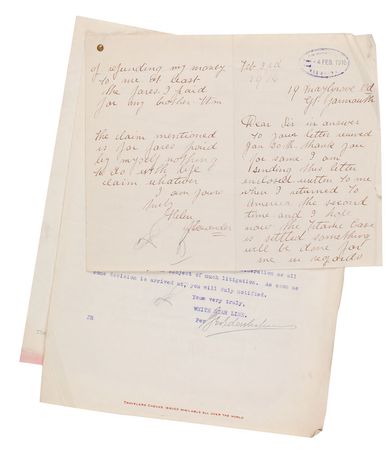 Feb 3rd
1916
4 FEB. 1916
19 Maygrove Rd
Gt Yarmouth
Dear Sir in answer
to your letter received
Jan 30th thank you
for same I am
sending this letter
enclosed written to me
when I returned to
America the second
time and I hope
now the Titanic Case
is settled something
will be done for
me in regards
of refunding my money
to me at least
the fares I paid
for my brother
The claim mentioned
is for fares paid
by myself nothing
to do with life
claim whatever
I am yours
truly
Helen
Alexander
subject of much litigation. As soon as
some decision is arrived at, you will duly notified.
Yours very truly,
WHITE STAR LINE.
Per
JR
TRAVELERS CHECKS ISSUED AVAILABLE ALL OVER THE WORLD